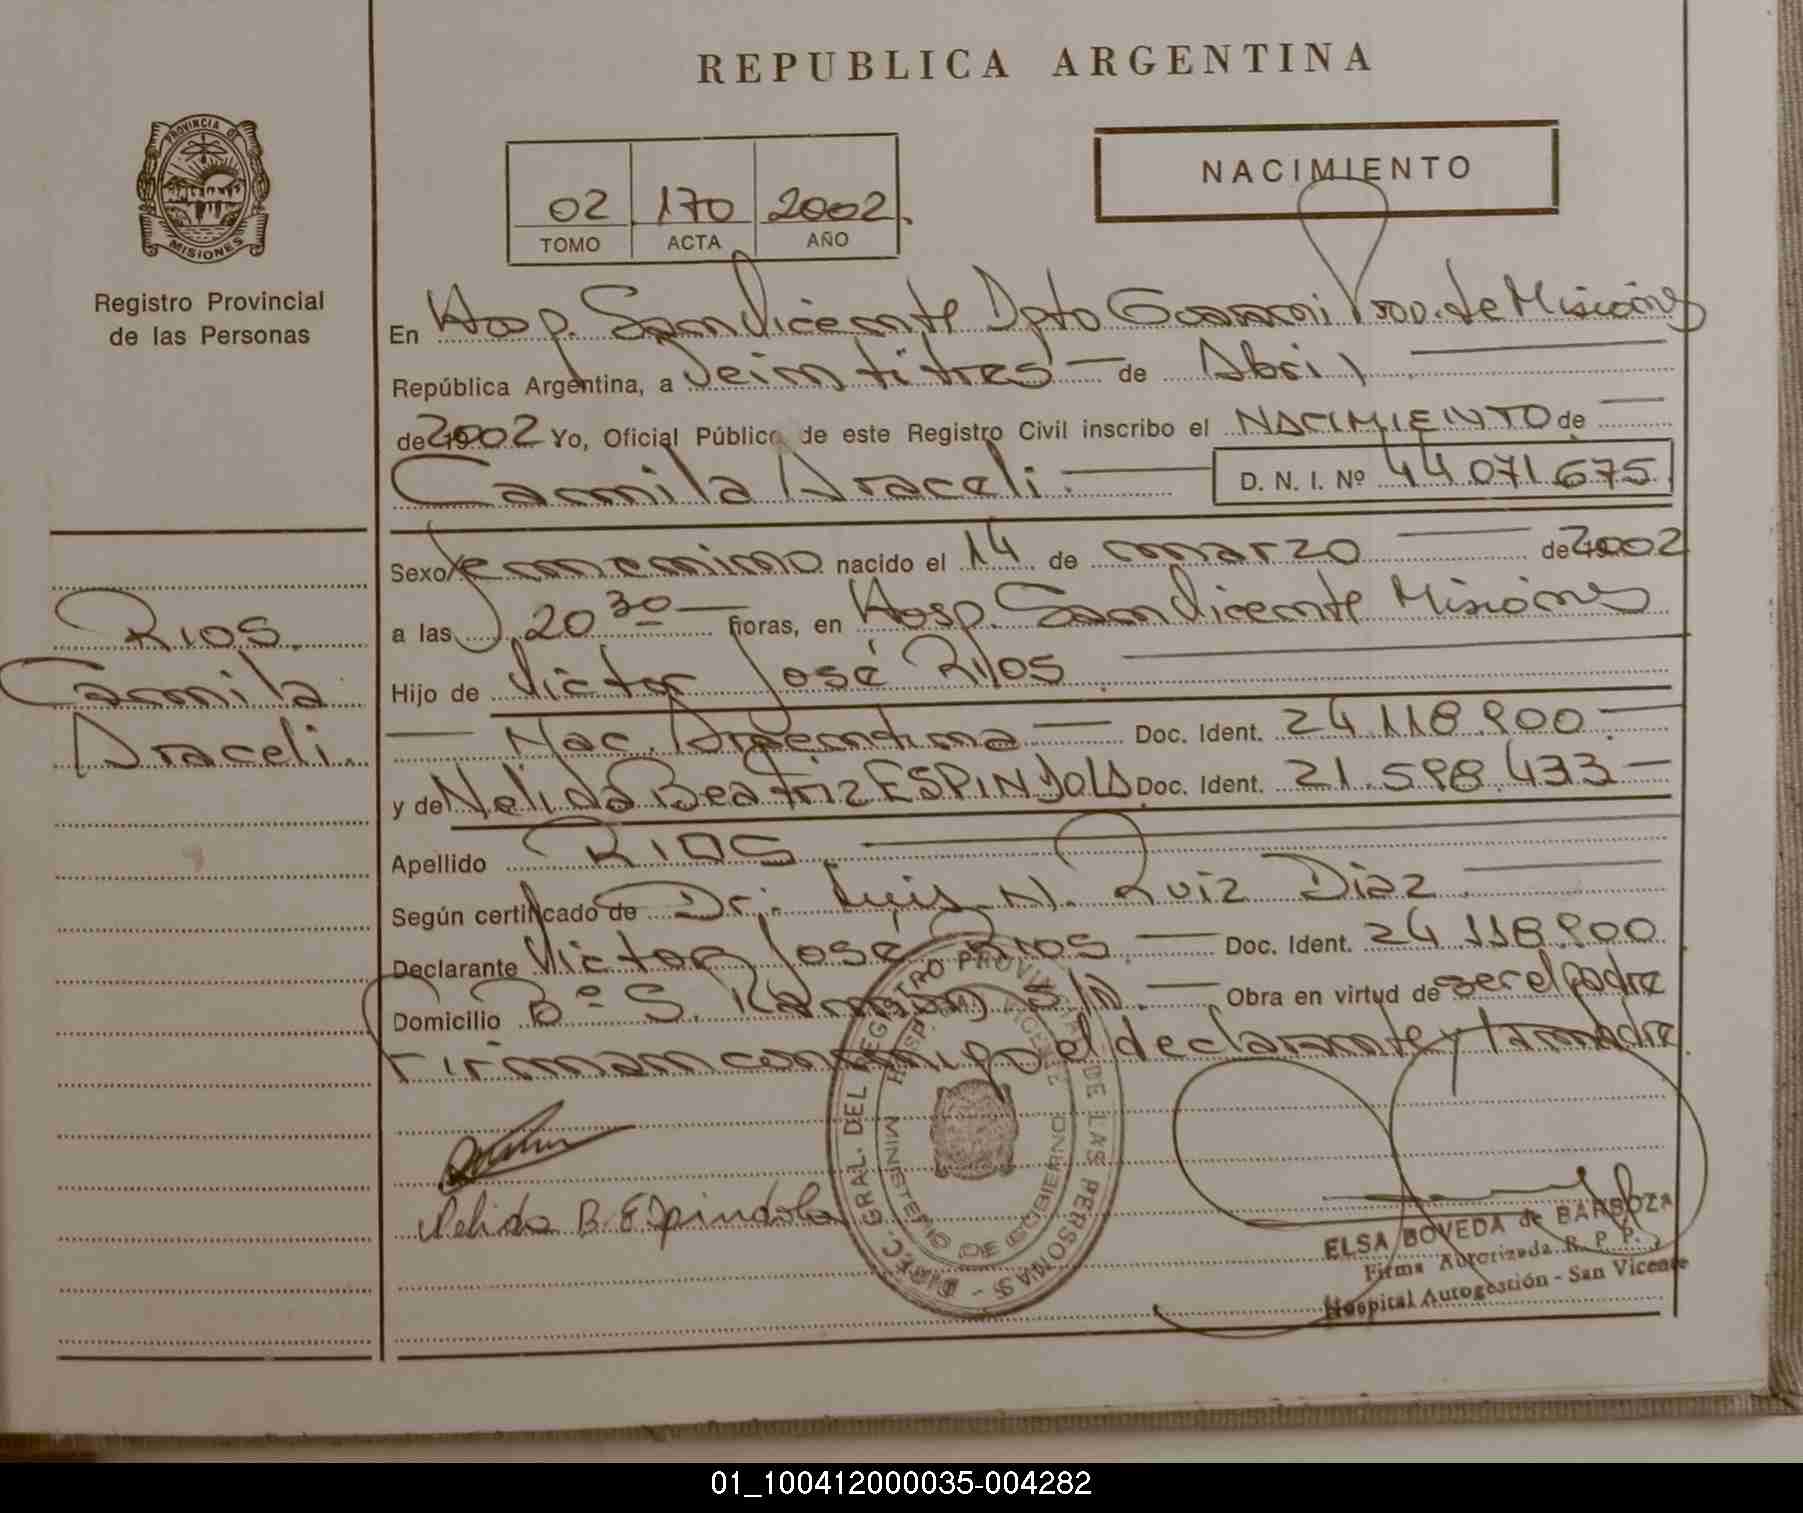 REPUBLICA ARGENTINA
PROVINCIA DE
MISIONES
Registro Provincial
de las Personas
02 170 2002.
TOMO ACTA AÑO
NACIMIENTO
En Hosp. San Vicente Dpto Guarani Prov. de Misiones
República Argentina, a Veintitres — de Abril
de 2002 Yo, Oficial Público de este Registro Civil inscribo el NACIMIENTO de
Camila Araceli. D. N. I. Nº 44 071 675
Sexo femenino nacido el 14 de marzo de 2002
a las 20 30 horas, en Hosp. San Vicente Misiones
Hijo de Victor José Rios
— Nac. Argentina — Doc. Ident. 24.118.900
y de Nelida Beatriz ESPINDOLA Doc. Ident. 21.598.433 —
Apellido RIOS
Según certificado de Dr. Luis N. Ruiz Diaz
Declarante Victor José Rios. — Doc. Ident. 24 118.900
Domicilio Bº S. Ramon S/N. — Obra en virtud de ser el padre
Firman conmigo el declarante y la madre
Rios.
Camila
Araceli.
Nelida B. Espindola
DIREC. GRAL. DEL REGISTRO PROVINCIAL DE LAS PERSONAS -
HOSP. SAN VICENTE
MINISTERIO DE GOBIERNO
ELSA BOVEDA de BARBOZA
Firma Autorizada R. P. P.
Hospital Autogestión - San Vicente
01_100412000035-004282